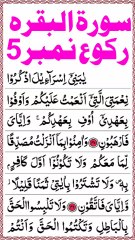 سورة البقره
رکوع نمبر 5
يٰبَنِيْۤ اِسْرَآءِيْلَ اذْكُرُوْا
نِعْمَتِيَ الَّتِيْۤ اَنْعَمْتُ عَلَيْكُمْ وَاَوْفُوْا
بِعَهْدِيْۤ اُوْفِ بِعَهْدِكُمْ ۚ وَاِيَّايَ
فَارْهَبُوْنِ وَاٰمِنُوْا بِمَاۤ اَنْزَلْتُ مُصَدِّقًا
لِّمَا مَعَكُمْ وَلَا تَكُوْنُوْۤا اَوَّلَ كَافِرٍۢ
بِهٖ ۪ وَلَا تَشْتَرُوْا بِاٰيٰتِيْ ثَمَنًا قَلِيْلًا ؗ
وَّاِيَّايَ فَاتَّقُوْنِ وَلَا تَلْبِسُوا الْحَقَّ
بِالْبَاطِلِ وَتَكْتُمُوا الْحَقَّ وَاَنْتُمْ